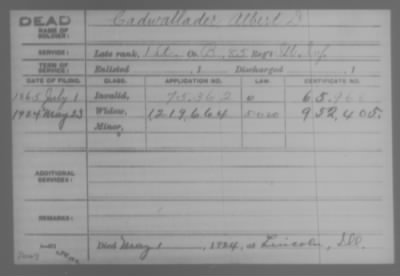 DEAD
NAME OF SOLDIER: Cadwallader Albert D
SERVICE: Late rank, 1 Lt. Co. B, 85 Reg't Ill. Inf.
TERM OF SERVICE: Enlisted , 1 Discharged , 1
DATE OF FILING. CLASS. APPLICATION NO. LAW. CERTIFICATE NO.
1865 July 1 Invalid, 75.362
1924 May 23 Widow, 1219,664 952,405.
Minor,
ADDITIONAL SERVICES:
REMARKS:
Died May 1 , 1924, at Lincoln, Ill.